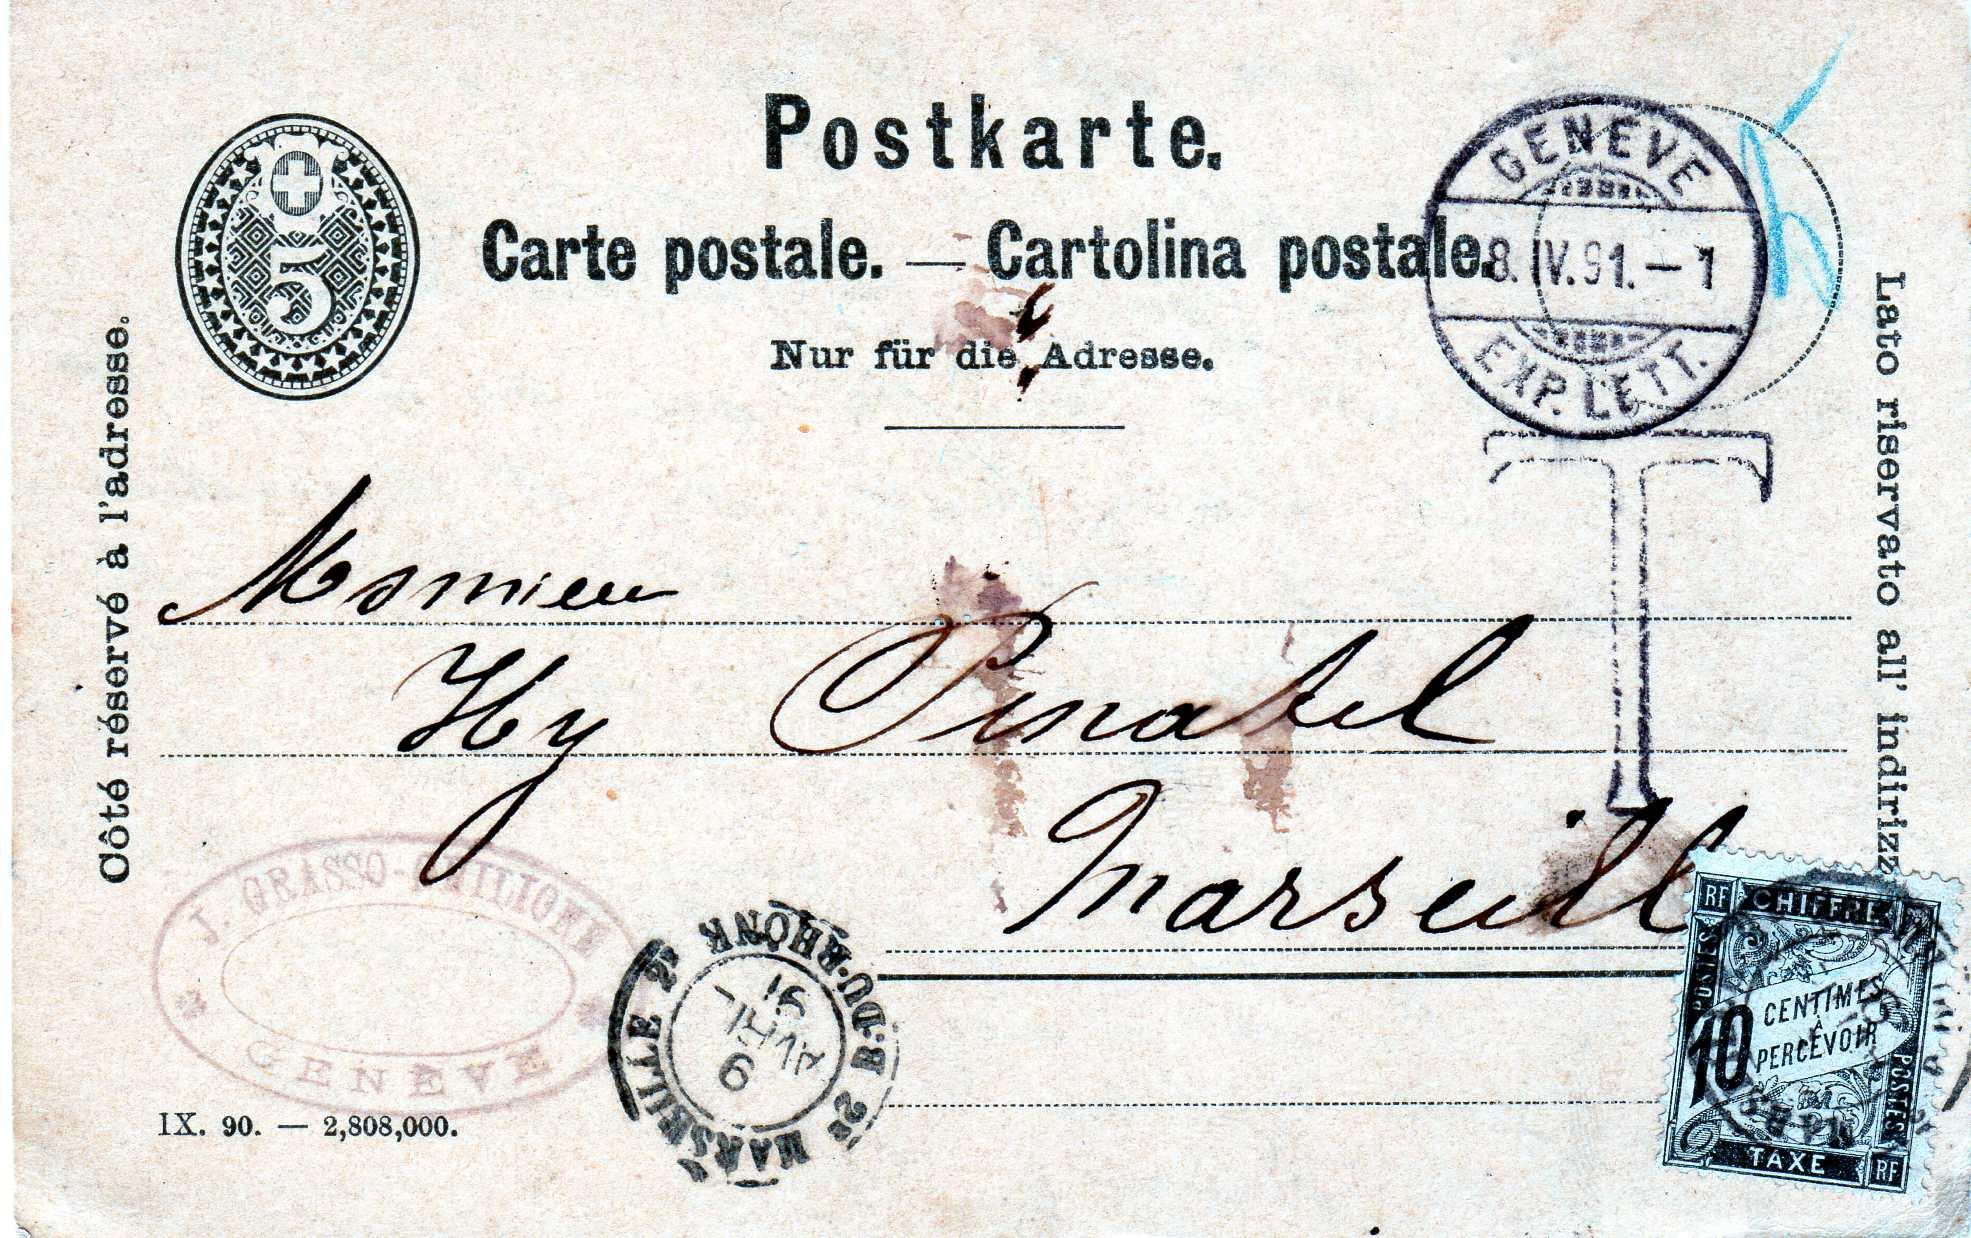 Postkarte.
Carte postale. — Cartolina postale.
Nur für die Adresse.
5
GENÈVE
8. IV. 91. — 1
EXP. LETT.
T
Côté réservé à l'adresse.
Lato riservato all' indirizz
Monsieur
Hy Pinatel
Marseill
J. GRASSO-
GENÈVE
MARSEILLE
9
AVRIL
91
B.-DU-RHÔNE
IX. 90. — 2,808,000.
RF CHIFFRE
POSTES
10 CENTIMES
À
PERCEVOIR
POSTES
TAXE RF